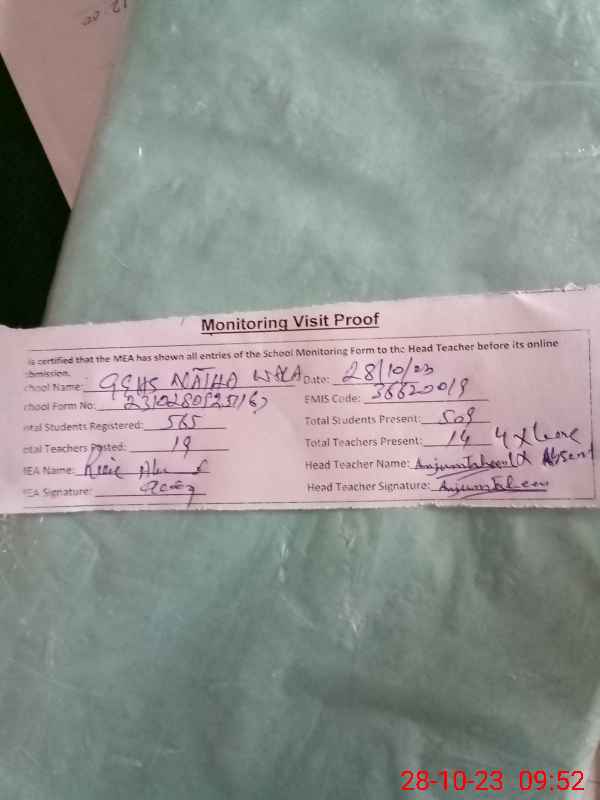 Monitoring Visit Proof
is certified that the MEA has shown all entries of the School Monitoring Form to the Head Teacher before its online
bmission.
chool Name: GGHS NATHO WALA Date: 28/10/23
chool Form No: EMIS Code: 36620019
otal Students Registered: 565 Total Students Present: 509
otal Teachers Posted: 19 Total Teachers Present: 14 4 x leave
MEA Name: Head Teacher Name: Anjum Absent
MEA Signature: Head Teacher Signature: Anjum
28-10-23 09:52